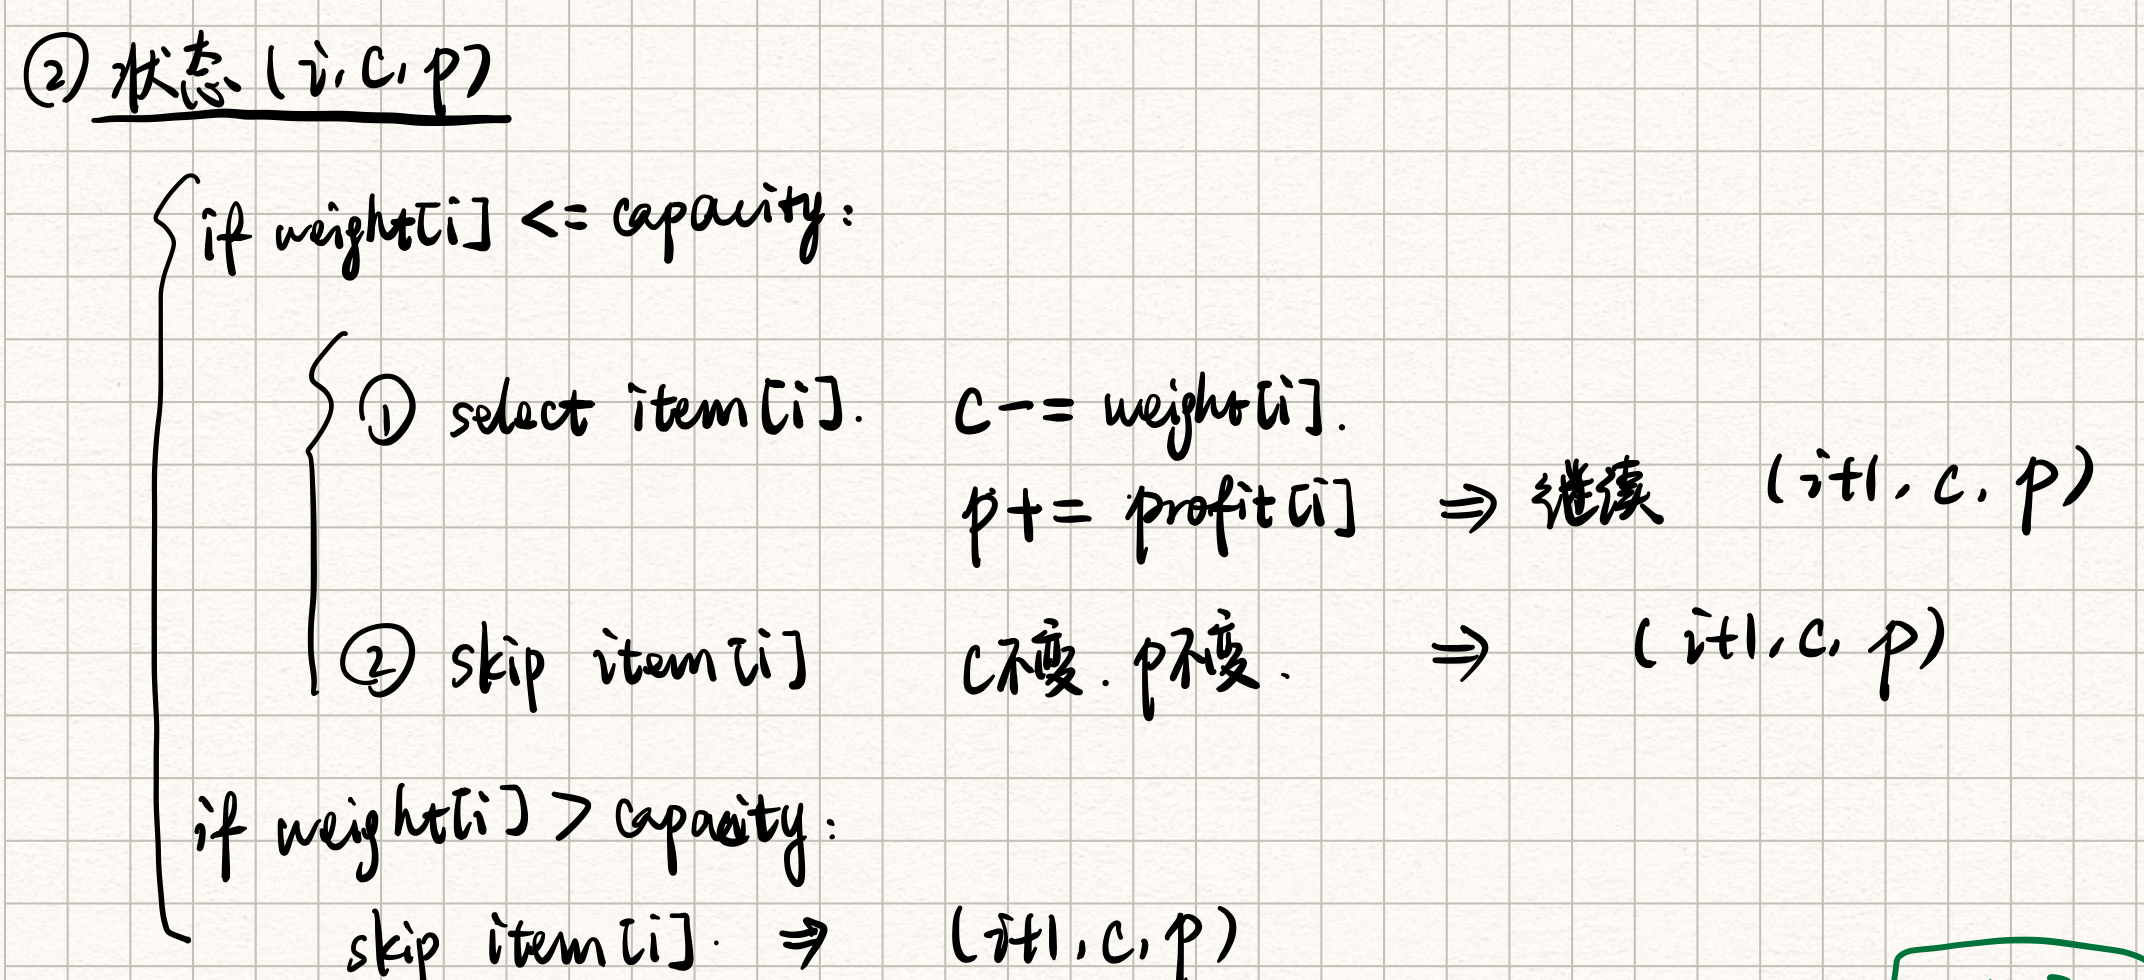 ② 状态 (i, c, p)
if weight[i] <= capacity:
① select item[i]. c -= weight[i].
p += profit[i] ⇒ 继续 (i+1, c, p)
② skip item[i] c不变. p不变. ⇒ (i+1, c, p)
if weight[i] > capacity:
skip item[i]. ⇒ (i+1, c, p)